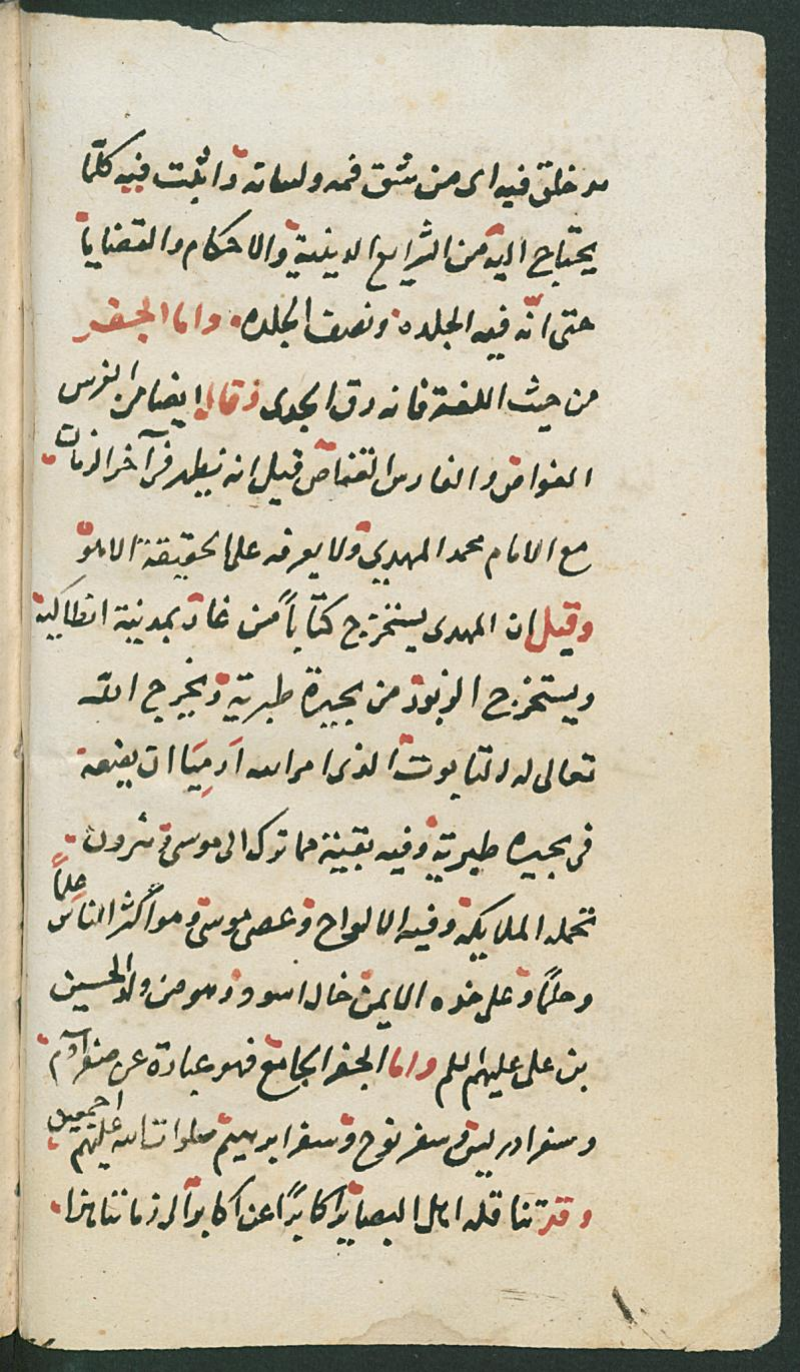 مدخلق فيه اى من شق فمه ولسانه واثبت فيه كلما
يحتاج اليه من الشرايع الدينية والاحكام والقضايا
حتى انه فيه الجلده ونصف الجلده واما الجفر
من حيث اللغة فانه رق الجدى وقال ايضا من الفرس
الغواص والفارس القناص قيل انه يظهر فى آخر الزمان
مع الامام محمد المهدى ولا يعرفه على الحقيقة الا هو
وقيل ان المهدى يستخرج كتاباً من غار بمدينة انطاكية
ويستخرج الزبور من بحيرة طبرية ويخرج الله
تعالى له التابوت الذى امر الله اَرمِيَا ان يضعه
فى بحيره طبرية وفيه بقية مما ترك ال موسى وهرون
تحمله الملايكة وفيه الالواح وعصى موسى وهو اكثر الناس عِلماً
وحلمًا وعلى خده الايمن خال اسود وهو من ولد الحسين
بن على عليهم السلم واما الجفر الجامع فهو عبارة عن سفر آدم
وسفر ادريس وسفر نوح وسفر ابرهيم صلوات الله عليهم اجمعين
وقد تناقله اهل البصاير اكابرًا عن اكابر آلى زماننا هذا